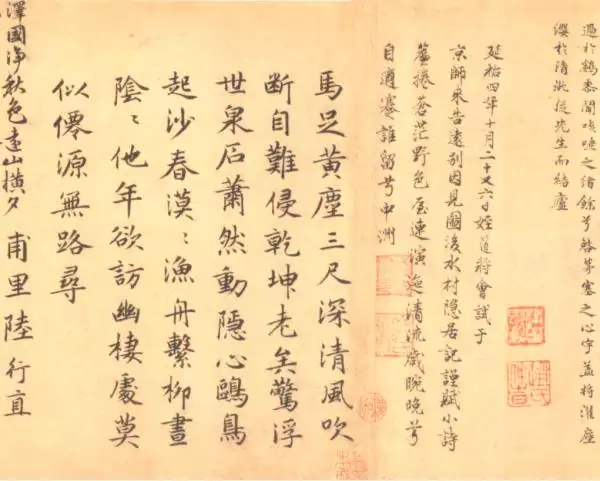 過於鷄黍聞咳唾之緒餘兮啓茅塞之心宇蓋將濯塵
纓於清泚從先生而結廬
延祐四年十月二十又六日姪道將會試于
京師來告遠別因見圖後水村隱居記謹賦小詩
簾捲蒼茫野色屋連演漾清流歲晼晚兮
自適蹇誰留兮中洲
馬足黃塵三尺深清風吹
断自難侵乾坤老矣驚浮
世泉石蕭然動隱心鷗鳥
起沙春漠〻漁舟繫柳晝
陰〻他年欲訪幽棲處莫
似僊源無路尋
甫里陸行直
澤國淨秋色遠山橫夕